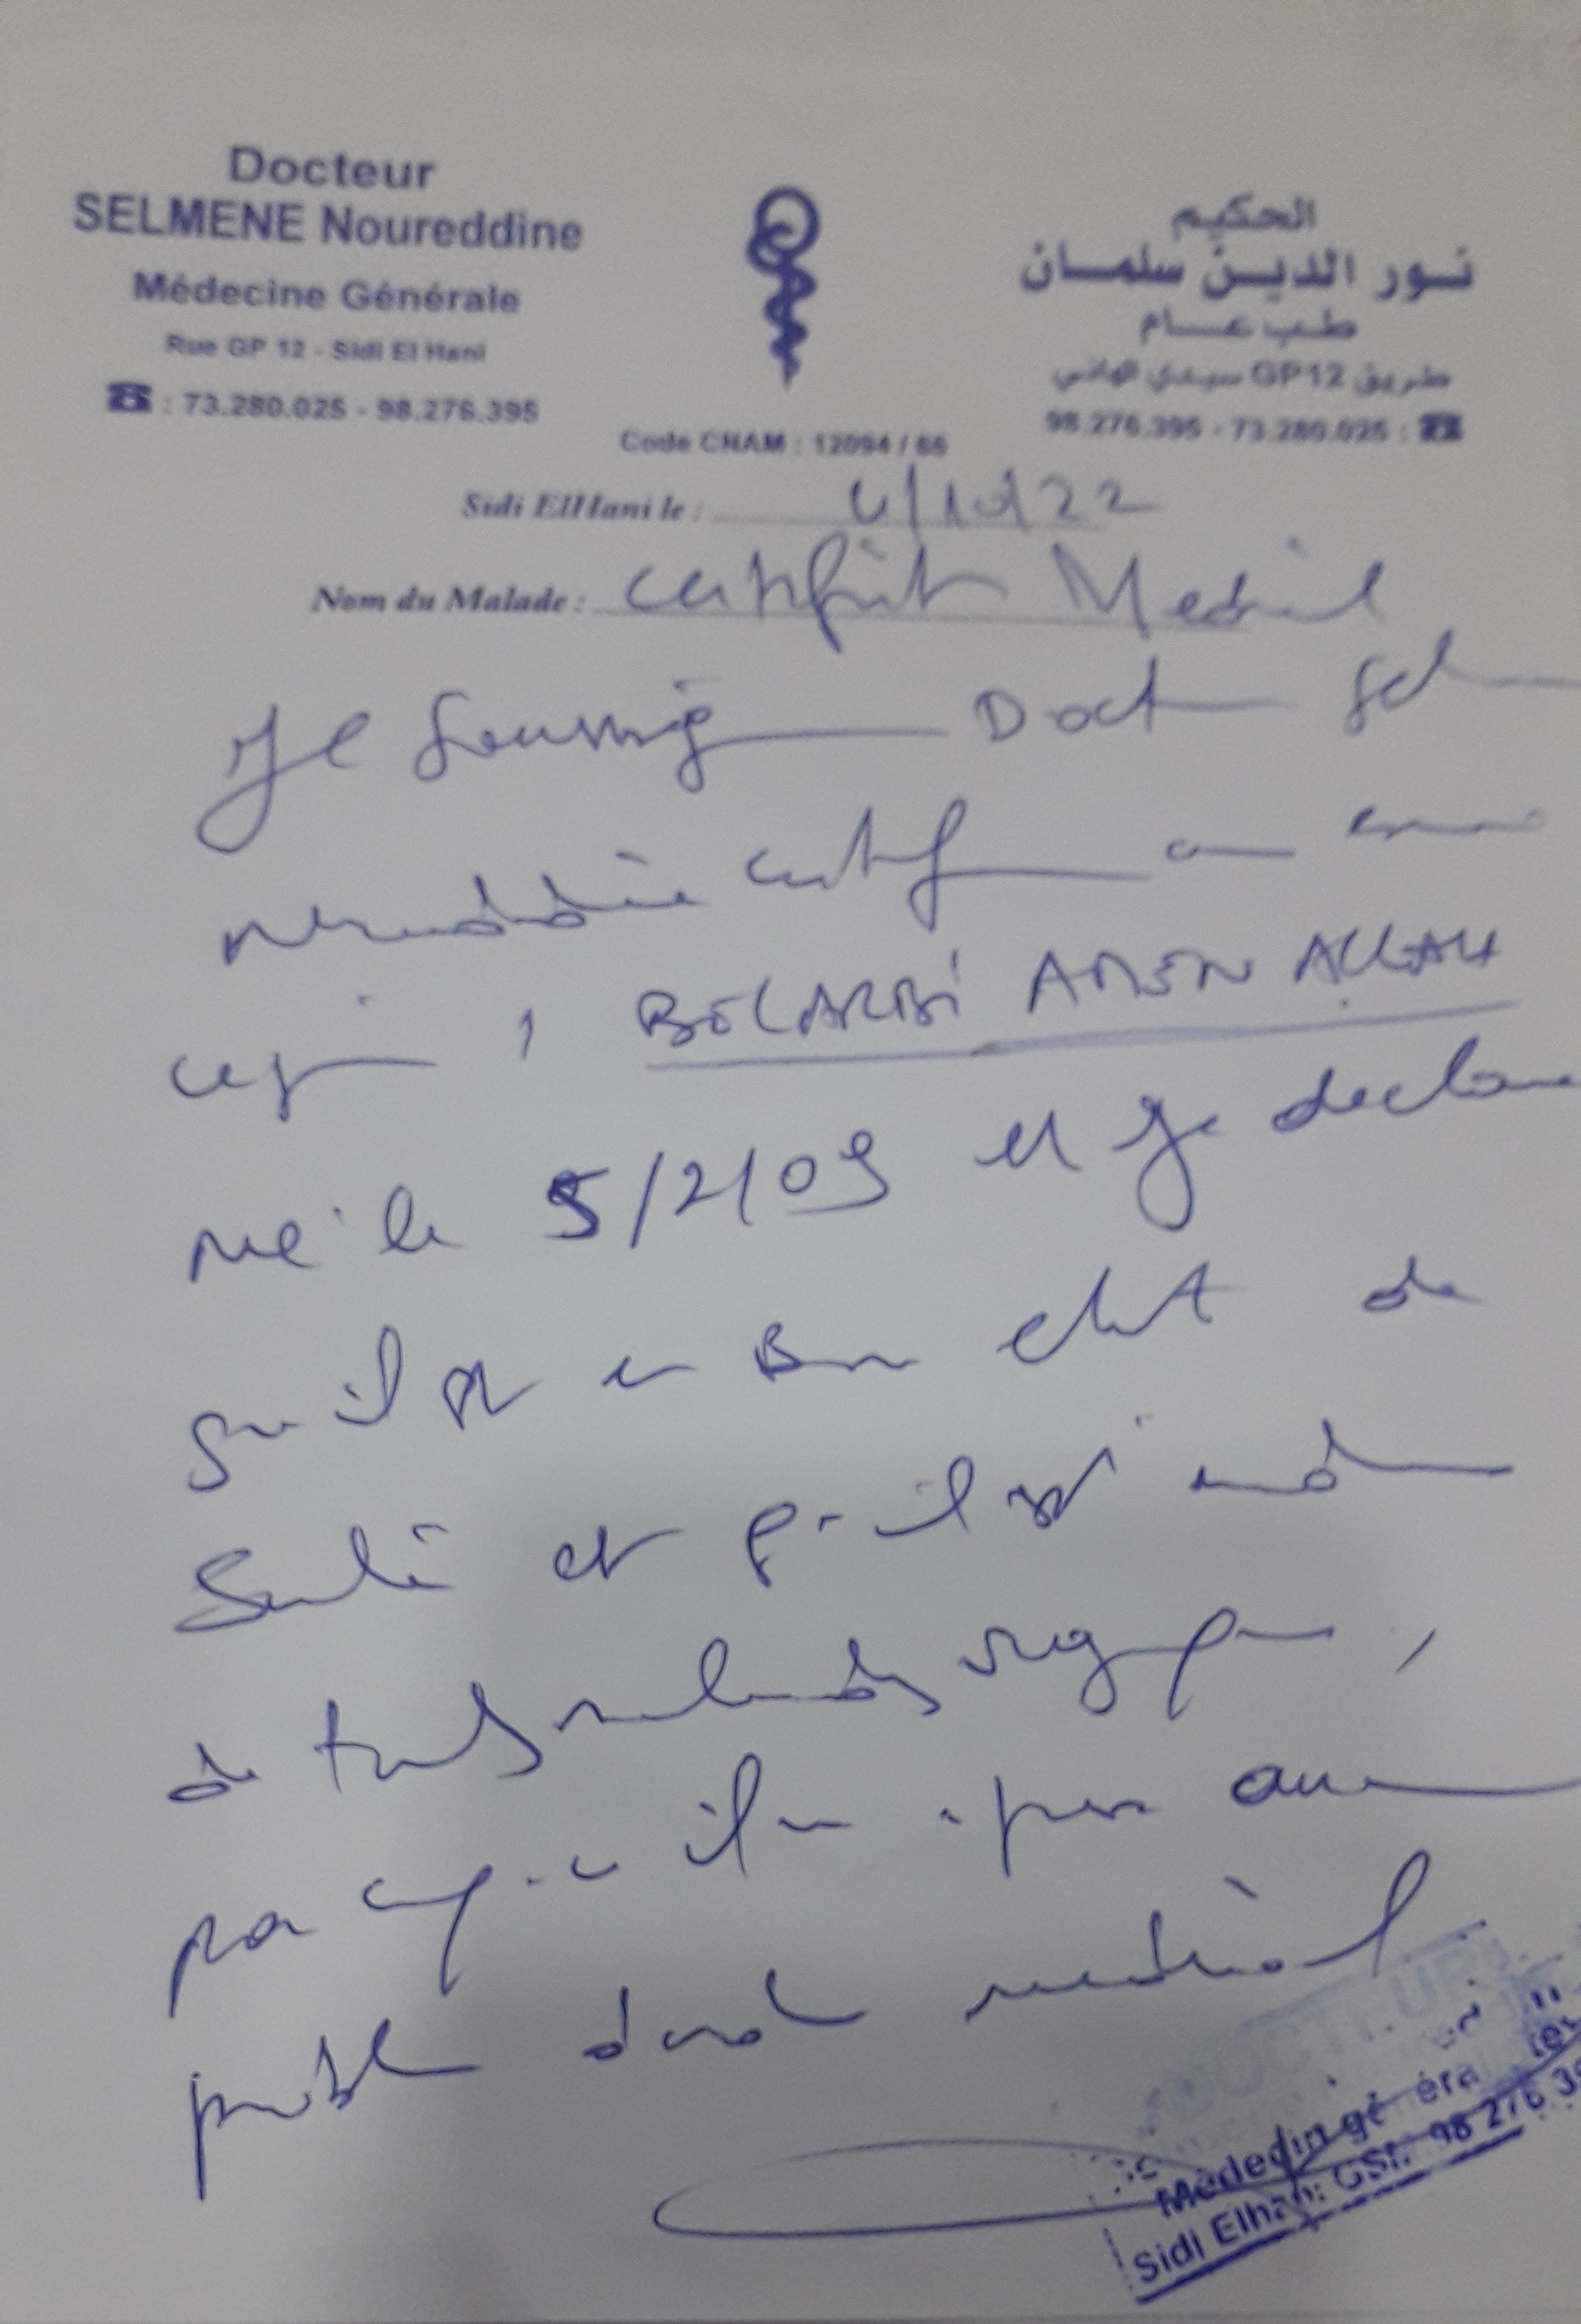 Docteur
SELMENE Noureddine
Médecine Générale
Rue GP 12 - Sidi El Hani
☎ : 73.280.025 - 98.276.395
الحكيم
نور الدين سلمان
طب عام
طريق GP12 سيدي الهاني
98.276.395 - 73.280.025 : ☎
Code CNAM : 12094 / 66
Sidi ElHani le : /10/22
Nom du Malade : Certificat Medical
Je soussigné Doct Sel
Noureddine certifie avoir examiné
ce jour, BELARBI AMEN ALLAH
né le 5/2/09 et je declare
qu'il est en Bon etat de
Santé et qu'il est indemne
de toutes maladies
par ce qu'il n'a pas aucun
problème d'ordre médical
DOCTEUR
Médecin générale
Sidi Elhani: GSM: 98 276 39